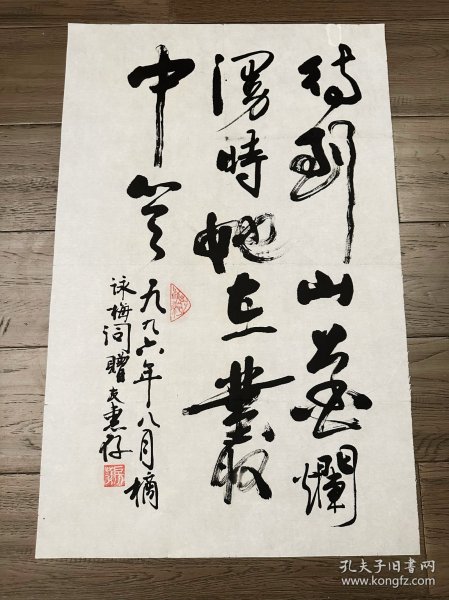 待到山花爛
漫時她在叢
中笑
一九九六年八月摘
詠梅词贈友惠存
孔夫子旧书网
www.kongfz.com